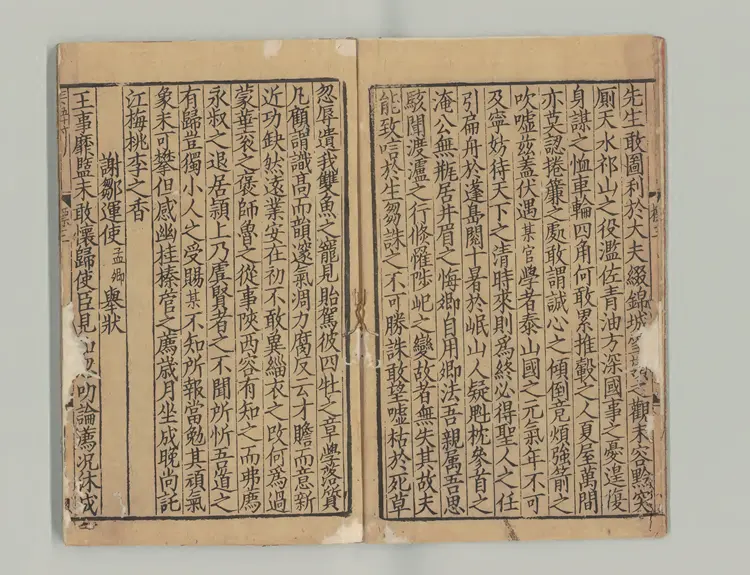 先生敢圖利於大夫綴錦城之觀未容黔突
厠天水祁山之役濫佐青油方深國事之憂遑復
身謀之恤車輪四角何敢累推轂之人夏屋萬間
亦莫認捲簾之處敢謂誠心之傾倒竟煩強箭之
吹噓茲蓋伏遇某官學者泰山國之元氣年不可
及寧妨待天下之清時來則為終必得聖人之任
引扁舟於蓬島閱十暑於岷山人疑點枕參首之
淹公無甁居井眉之悔卿自用卿法吾親属吾恩
駭聞渡瀘之行倏罹陟屺之變故者無失其故夫
能致唁於生芻誅之不可勝誅敢望噓枯於死草
謝鄒運使孟卿舉狀
王事靡盬未敢懷歸使臣見叨論薦况休戚
忽辱遺我雙魚之寵見貽駕彼四牡之章學落質
凡顧謂識高而韻邃氣凋力腐反云才贍而意新
近功缺然遠業安在初不敢異緇衣之改何為過
蒙華衮之褒師魯之從事陜西容有知之而弗薦
永叔之退居潁上乃虛賢者之不聞所忻吾道之
有歸豈獨小人之受賜某不知所報當勉其頑氣
象未可攀但感幽桂榛菅之薦歲月坐成晚尚託
江梅桃李之香